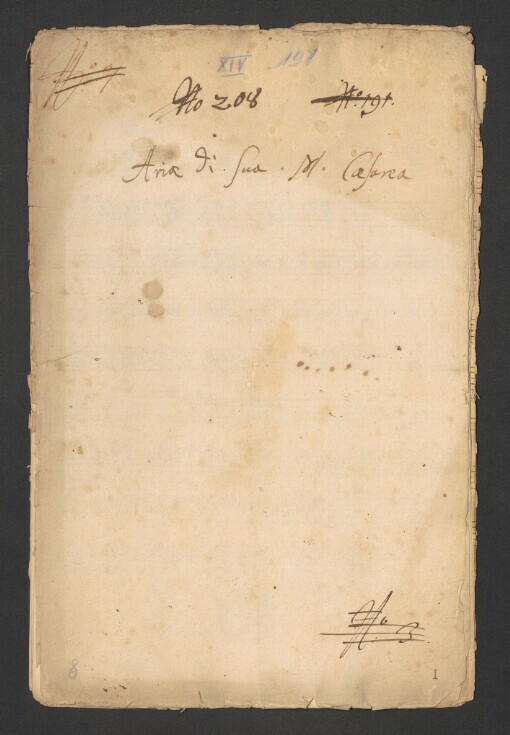 XIV 191
No 7
No 208 No. 191.
Ariæ di. Sua. M. Cæsarea
No 3
8 1